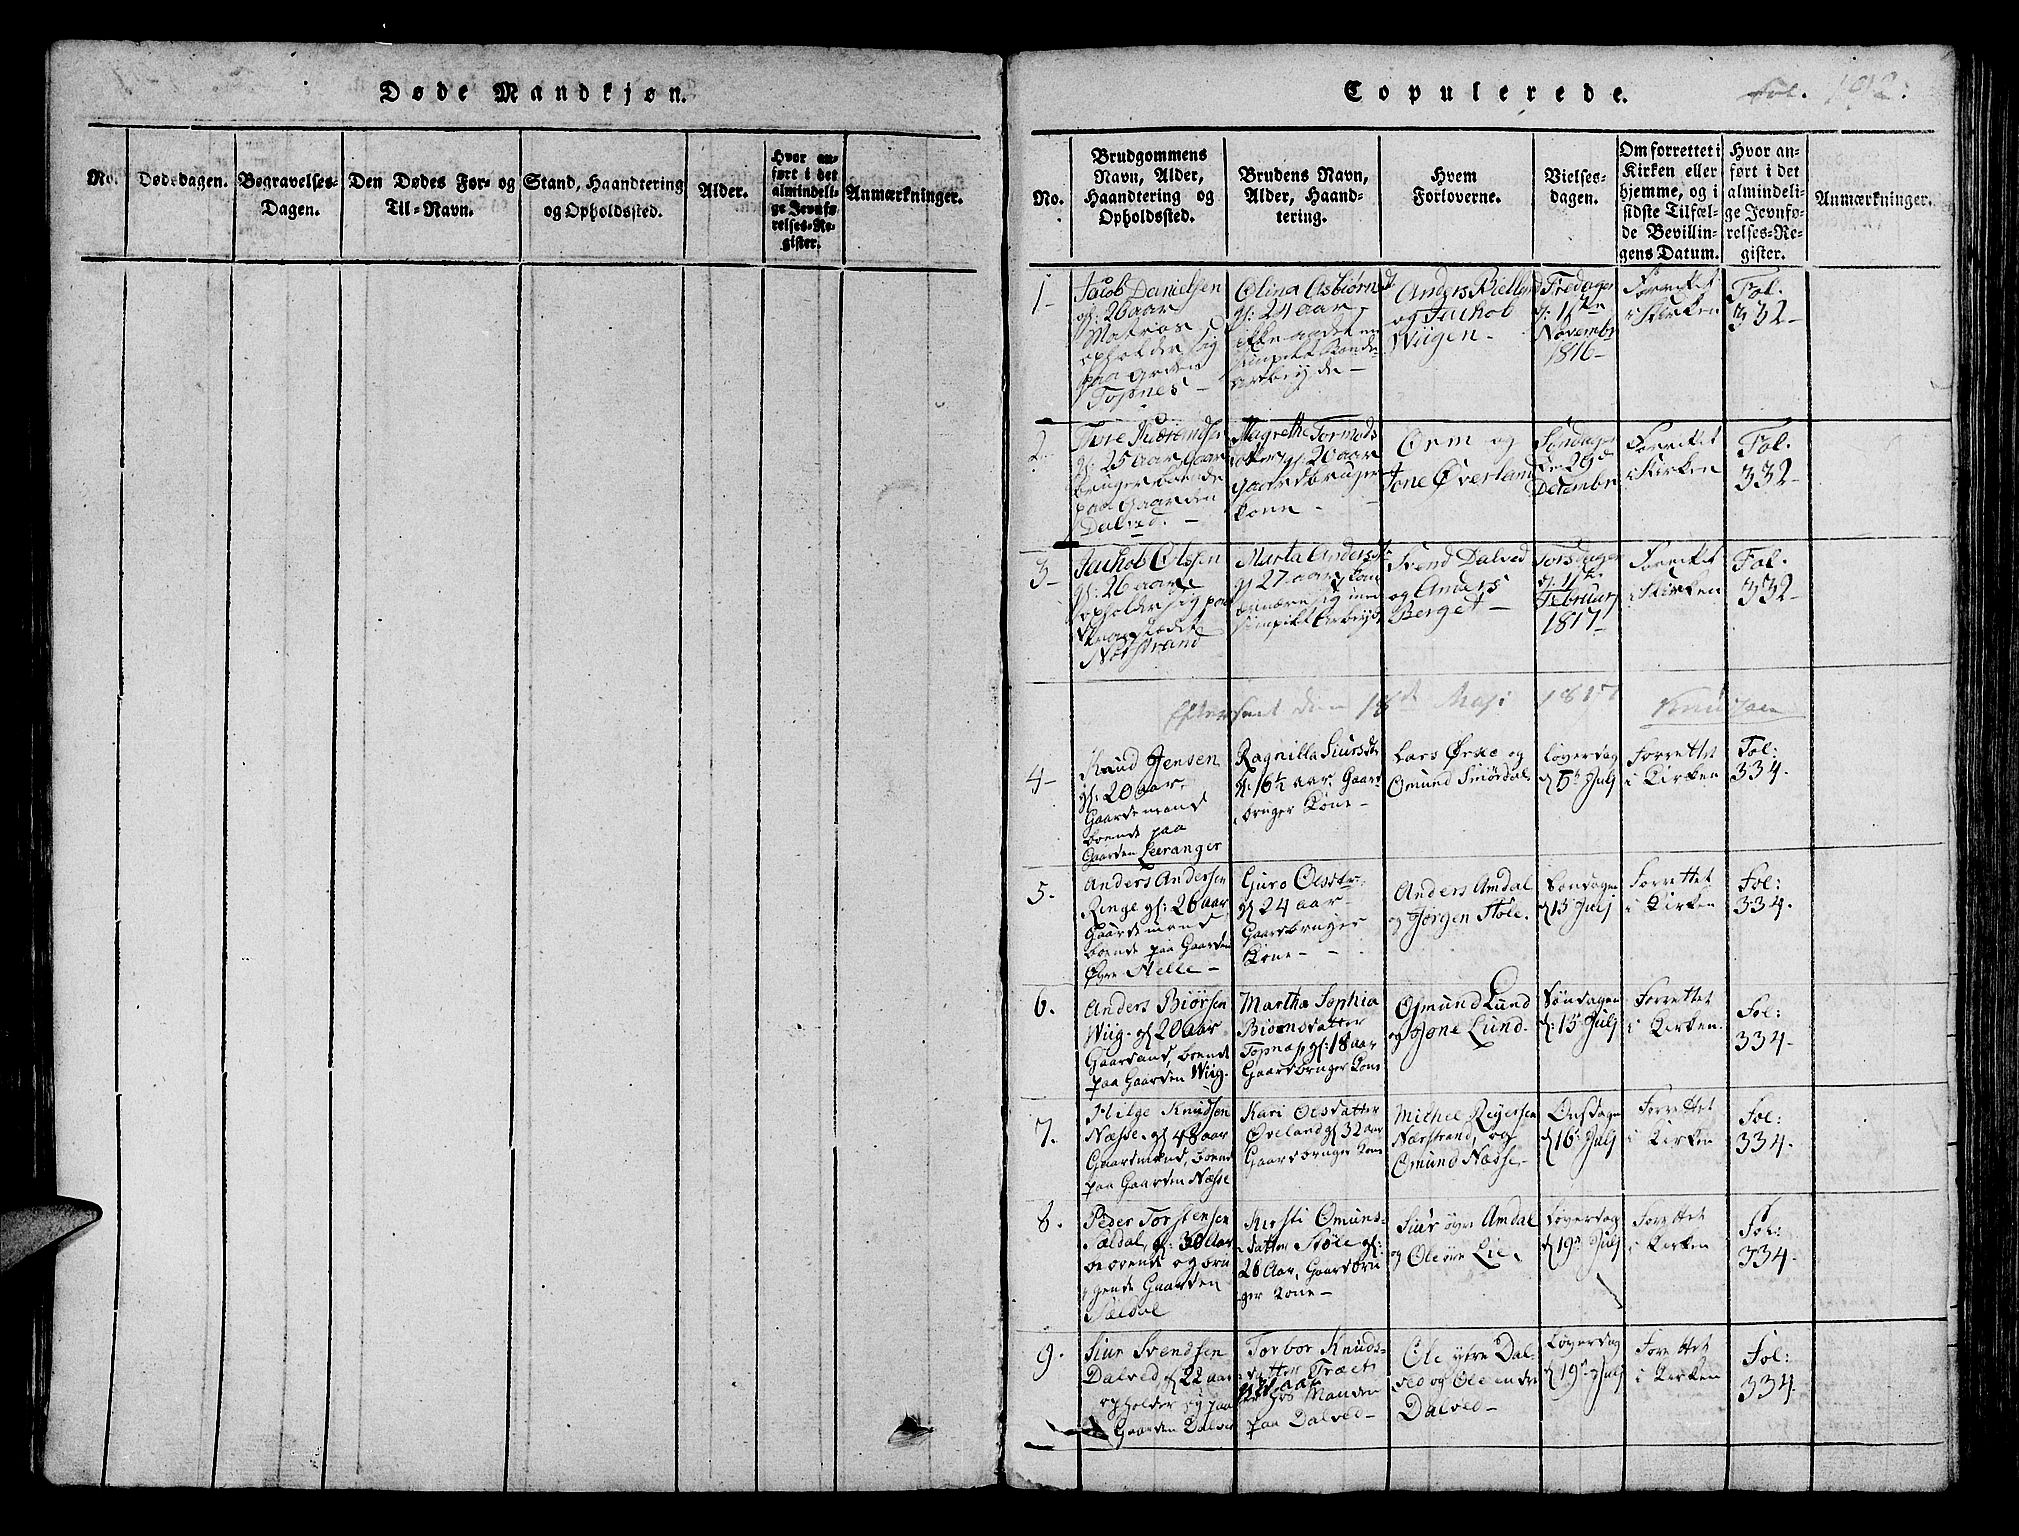 Døde Mandkjøn.
No.
Dødsdagen.
Begravelses-
Dagen.
Den Dødes For- og
Til-Navn.
Stand, Haandtering
og Opholdssted.
Alder.
Hvor an-
ført i det
almindeli-
ge Jevnfø-
relses-Re-
gister.
Anmærkninger.
Copulerede.
Fol. 192.
No.
Brudgommens
Navn, Alder,
Haandtering og
Opholdssted.
Brudens Navn,
Alder, Haand-
tering.
Hvem
Forloverne.
Vielses-
dagen.
Om forrettet i
Kirken eller
hjemme, og i
sidste Tilfæl-
de Bevillin-
gens Datum.
Hvor an-
ført i det
almindeli-
ge Jevnfø-
relses-Re-
gister.
Anmærkninger.
1-
Jacob Danielsen
gl: 26 aar
Matros
opholder sig
paa Garden
Topnes-
Olina Asbiørnsdt
gl: 24 aar
ikke andet en
simpelt Bonde
arbeyde-
Anders Kielland
og Jachob
Wiigen-
Fredagen
d: 1te
Novembr
1816-
Forrettet
i Kirken
Fol.
332-
2-
gl: 25 aar Gaar
bruger boende
paa Gaarden
Dalved.-
Magrethe Tormods
dotter gl: 20 aar
gaardbruger
kone-
Orm og
Jone Øverland
Søndagen
den 29de
Decembr
Forrettet
i Kirken
Fol.
332-
3-
Jachob Olssen
gl: 26 aar
opholder sig paa
Strandstedet
Nærstrand
Marta Andersdt
gl 27 aar kan
ernære sig med
simpelt Arbeyde
Svend Dalved
og Anders
Berget-
Torsdagen
d: 1te
Februarj
1817-
Forrettet
i Kirken
Fol.
332-
Efterseet den 18de Maj: 1817 Knudsen
4-
Knud Jensen
gl: 20 aar,
Gaardemand
boende paa
Gaarden Leeranger
Ragnilla Siursdtr
gl: 16½ aar, Gaard-
bruger Kone-
Lars Ørke og
Omund Smördal
Løverdag
d 5te Julj
Forrettet
i Kirken
Fol:
334.
5.
Anders Andersen
Ringe gl: 26 aar
Gaardemand
boende paa Gaarden
Øvre Helle-
Guro Olsdtr:
gl 24 aar-
Gaardbruger
Kone-
Anders Amdal
og Jørgen Støle.
Søndagen
d 13 Julj
Forrettet
i Kirken
Fol:
334.
6.
Anders Biörsen
Wiig- gl 20 aar
Gaardmand, boende
paa Gaarden Wiig.
Martha Sophia
Biörnsdatter
Topnæs, gl: 18 aar
Gaardbruger Kone
Osmund Lund
og Jone Lund-
Søndagen
d: 13 Julj
Forrettet
i Kirken.
Fol:
334-
7.
Hilge Knudsen
Næsse. gl 48 aar
Gaardmand, boende
paa Gaarden Næsse
Kari Olsdatter
Øveland gl 32 aar
Gaardbruger Kone
Mithel Reyersen
Nærstrand, og
Omund Næsse-
Onsdagen
d 16 Julj
Forrettet
i Kirken
Fol:
334.
8.
Peder Torstensen
Sældal, gl: 30 Aar
beboende og bru
gende Gaarden
Sældal
Kirsti Omuns-
datter Støle gl:
26 Aar, Gaardbru
ger Kone-
Siur øvre Amdal
og Ole øvre Lie.
Løverdag
d 19de Julj
Forrettet
i Kirken
Fol:
334-
9.
Siur Svendsen
Dalved gl 22 aar
opholder sig paa
Gaarden Dalved
Torbor Knuds-
datter Træet
hos Manden
paa Dalved-
Ole ytre Dal-
ved og Ole indre
Dalved-
Løverdag
d 19de Julj
Forrettet
i Kirken
Fol:
334.